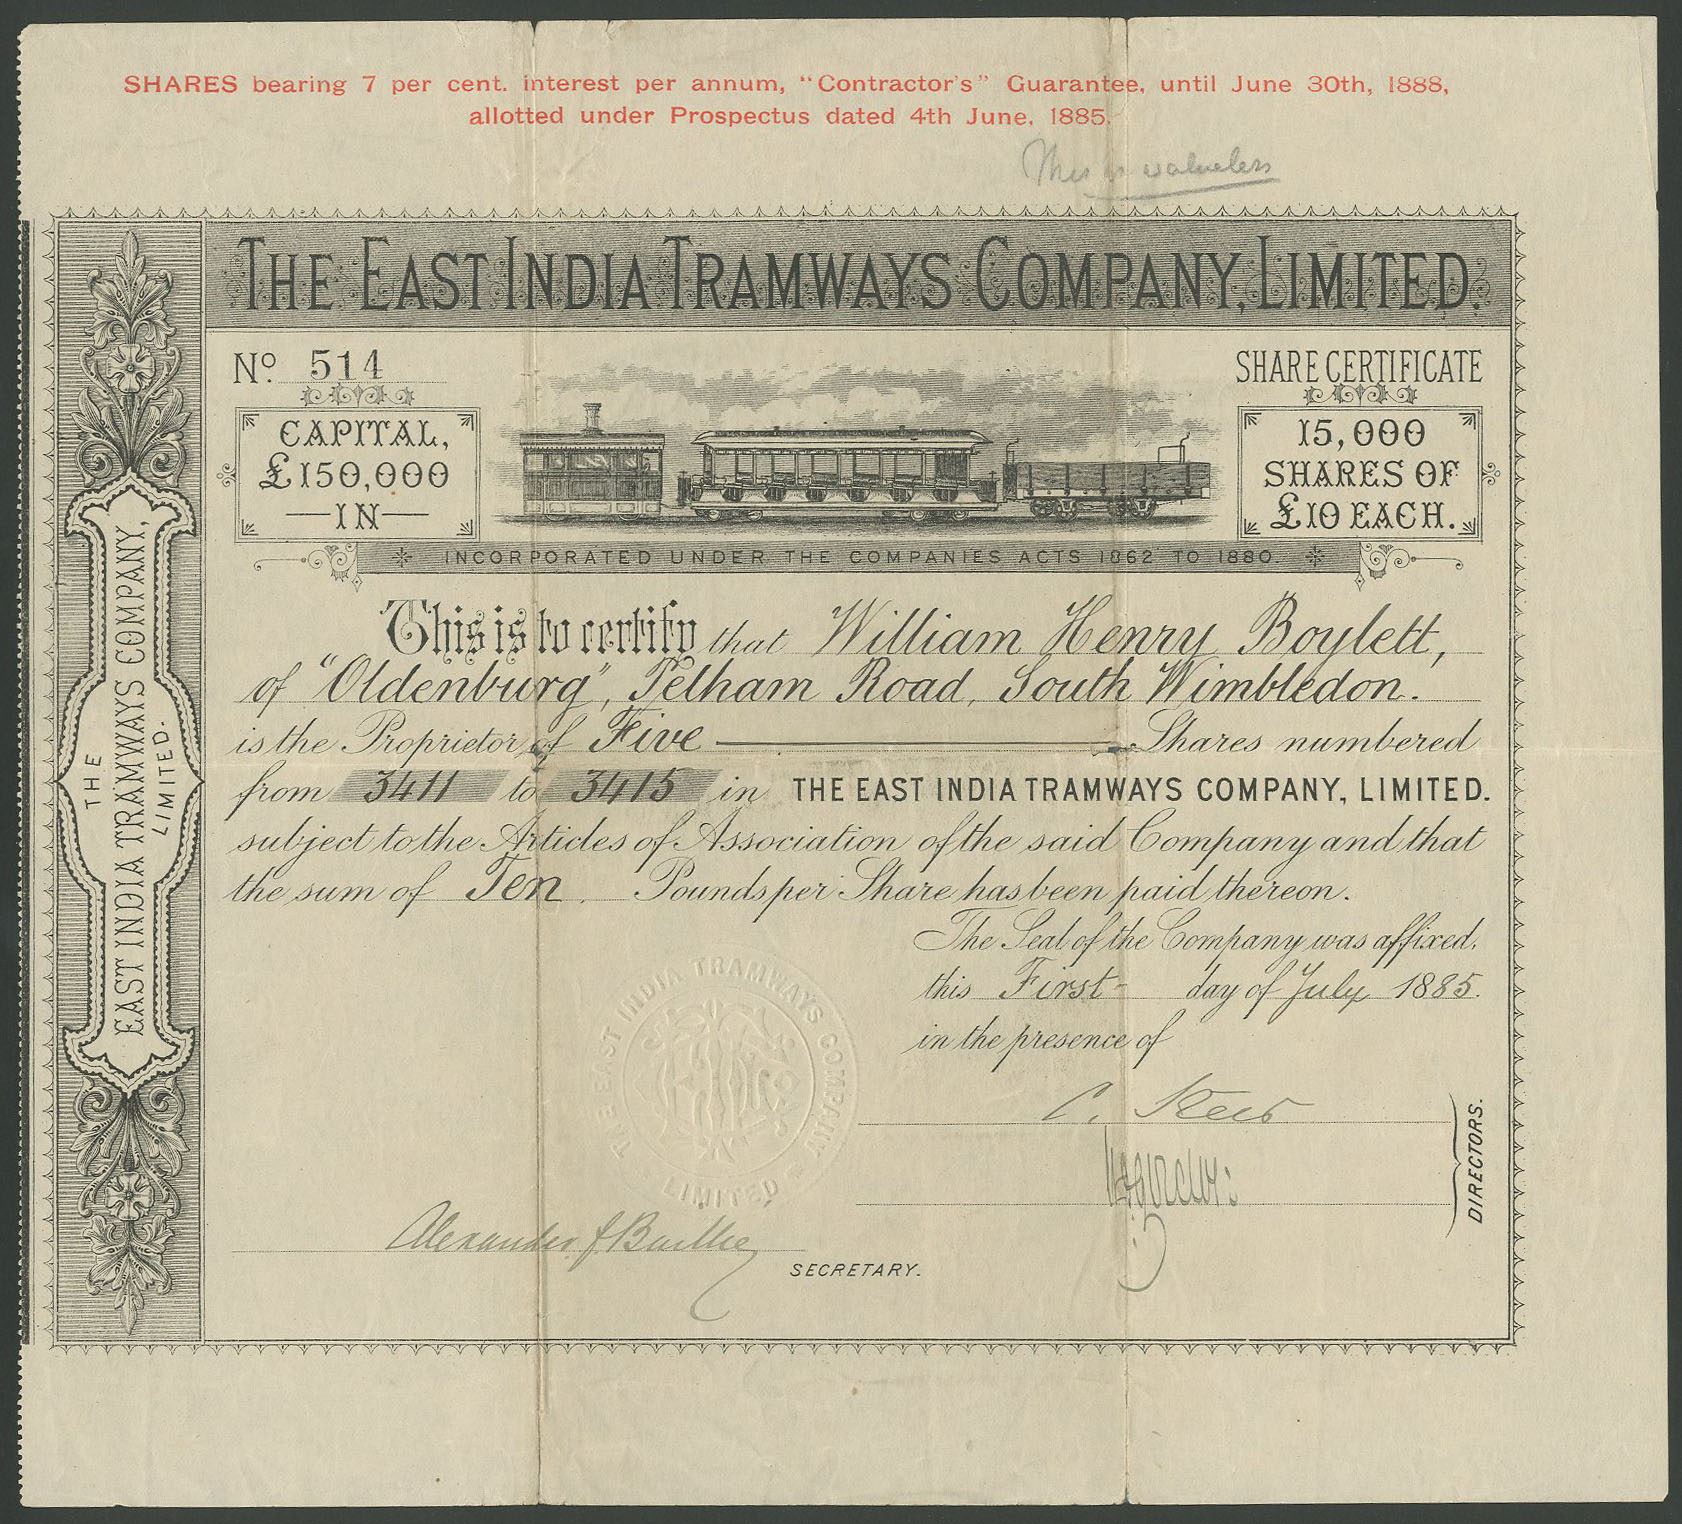 SHARES bearing 7 per cent. interest per annum, "Contractor's" Guarantee, until June 30th, 1888,
allotted under Prospectus dated 4th June, 1885.
This is valueless
THE EAST INDIA TRAMWAYS COMPANY, LIMITED.
No. 514
SHARE CERTIFICATE
CAPITAL,
£150,000
IN
15,000
SHARES OF
£10 EACH.
INCORPORATED UNDER THE COMPANIES ACTS 1862 TO 1880.
THE
EAST INDIA TRAMWAYS COMPANY,
LIMITED.
This is to certify that William Henry Boylett,
of "Oldenburg", Pelham Road, South Wimbledon.
is the Proprietor of Five Shares numbered
from 3411 to 3415 in THE EAST INDIA TRAMWAYS COMPANY, LIMITED.
subject to the Articles of Association of the said Company and that
the sum of Ten Pounds per Share has been paid thereon.
The Seal of the Company was affixed,
this First day of July 1885.
in the presence of
THE EAST INDIA TRAMWAYS COMPANY
LIMITED
DIRECTORS.
Alexander f Baillie
SECRETARY.